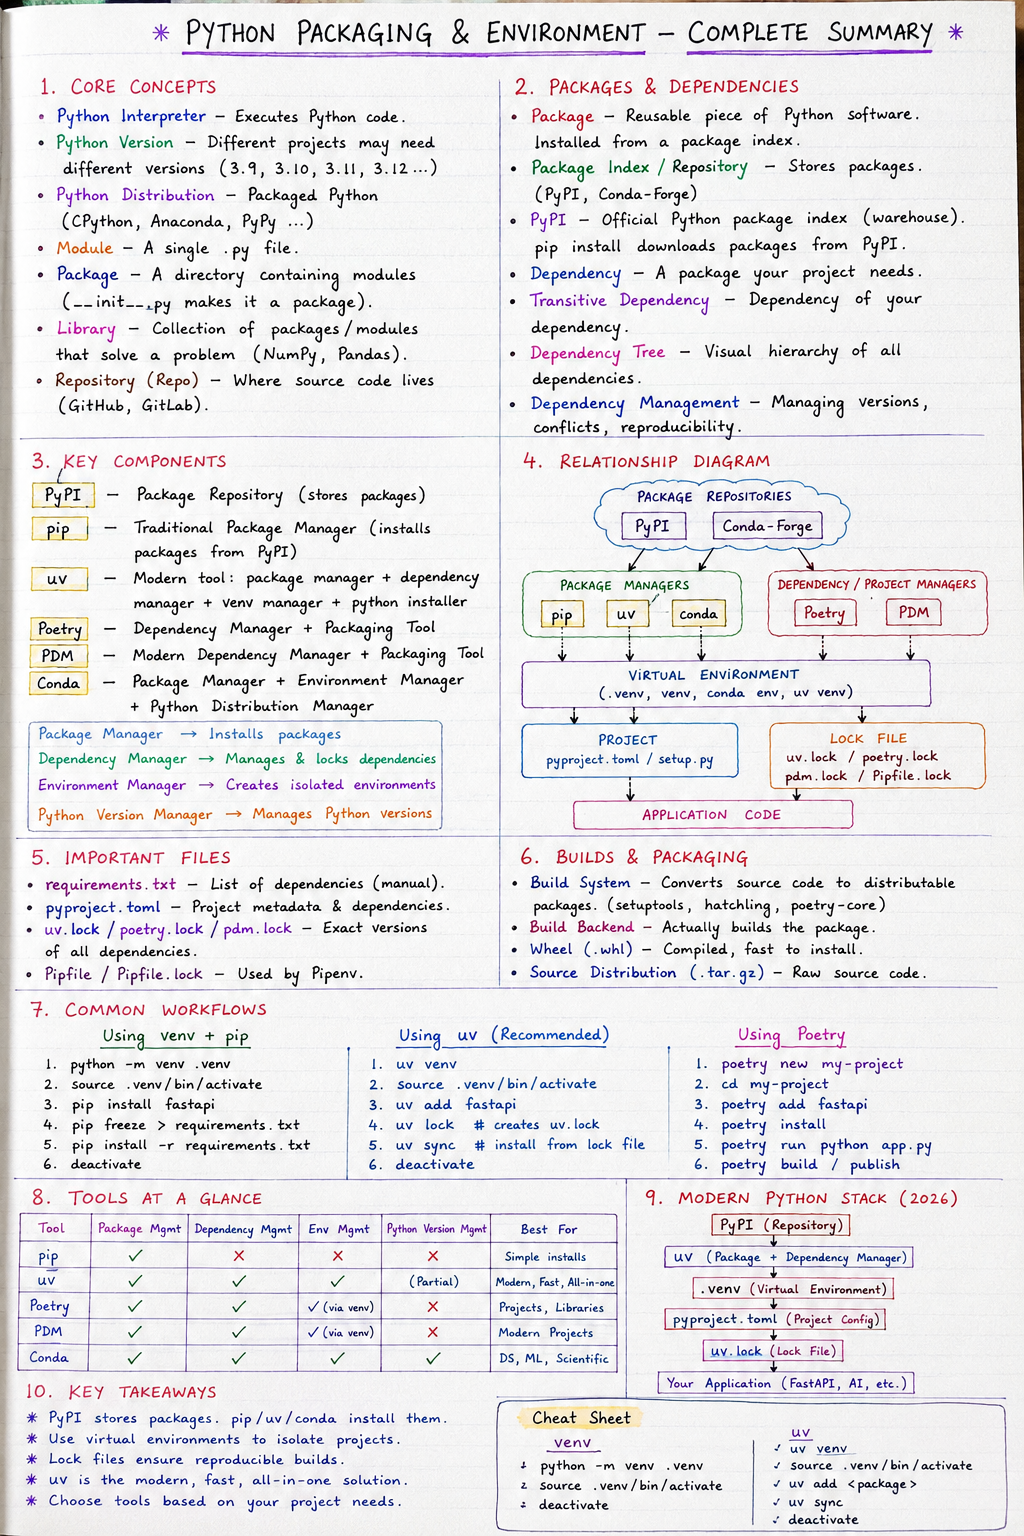 * PYTHON PACKAGING & ENVIRONMENT – COMPLETE SUMMARY *
1. CORE CONCEPTS
• Python Interpreter – Executes Python code.
• Python Version – Different projects may need
different versions (3.9, 3.10, 3.11, 3.12...)
• Python Distribution – Packaged Python
(CPython, Anaconda, PyPy ...)
• Module – A single .py file.
• Package – A directory containing modules
(__init__.py makes it a package).
• Library – Collection of packages/modules
that solve a problem (NumPy, Pandas).
• Repository (Repo) – Where source code lives
(GitHub, GitLab).
2. PACKAGES & DEPENDENCIES
• Package – Reusable piece of Python software.
Installed from a package index.
• Package Index / Repository – Stores packages.
(PyPI, Conda-Forge)
• PyPI – Official Python package index (warehouse).
pip install downloads packages from PyPI.
• Dependency – A package your project needs.
• Transitive Dependency – Dependency of your
dependency.
• Dependency Tree – Visual hierarchy of all
dependencies.
• Dependency Management – Managing versions,
conflicts, reproducibility.
3. KEY COMPONENTS
PyPI – Package Repository (stores packages)
pip – Traditional Package Manager (installs
packages from PyPI)
uv – Modern tool: package manager + dependency
manager + venv manager + python installer
Poetry – Dependency Manager + Packaging Tool
PDM – Modern Dependency Manager + Packaging Tool
Conda – Package Manager + Environment Manager
+ Python Distribution Manager
Package Manager → Installs packages
Dependency Manager → Manages & locks dependencies
Environment Manager → Creates isolated environments
Python Version Manager → Manages Python versions
4. RELATIONSHIP DIAGRAM
PACKAGE REPOSITORIES
PyPI Conda-Forge
PACKAGE MANAGERS
pip uv conda
DEPENDENCY / PROJECT MANAGERS
Poetry PDM
VIRTUAL ENVIRONMENT
(.venv, venv, conda env, uv venv)
PROJECT
pyproject.toml / setup.py
LOCK FILE
uv.lock / poetry.lock
pdm.lock / Pipfile.lock
APPLICATION CODE
5. IMPORTANT FILES
• requirements.txt – List of dependencies (manual).
• pyproject.toml – Project metadata & dependencies.
• uv.lock / poetry.lock / pdm.lock – Exact versions
of all dependencies.
• Pipfile / Pipfile.lock – Used by Pipenv.
6. BUILDS & PACKAGING
• Build System – Converts source code to distributable
packages. (setuptools, hatchling, poetry-core)
• Build Backend – Actually builds the package.
• Wheel (.whl) – Compiled, fast to install.
• Source Distribution (.tar.gz) – Raw source code.
7. COMMON WORKFLOWS
Using venv + pip
1. python -m venv .venv
2. source .venv/bin/activate
3. pip install fastapi
4. pip freeze > requirements.txt
5. pip install -r requirements.txt
6. deactivate
Using uv (Recommended)
1. uv venv
2. source .venv/bin/activate
3. uv add fastapi
4. uv lock # creates uv.lock
5. uv sync # install from lock file
6. deactivate
Using Poetry
1. poetry new my-project
2. cd my-project
3. poetry add fastapi
4. poetry install
5. poetry run python app.py
6. poetry build / publish
8. TOOLS AT A GLANCE
Tool Package Mgmt Dependency Mgmt Env Mgmt Python Version Mgmt Best For
pip ✓ ✗ ✗ ✗ Simple installs
uv ✓ ✓ ✓ (Partial) Modern, Fast, All-in-one
Poetry ✓ ✓ ✓ (via venv) ✗ Projects, Libraries
PDM ✓ ✓ ✓ (via venv) ✗ Modern Projects
Conda ✓ ✓ ✓ ✓ DS, ML, Scientific
9. MODERN PYTHON STACK (2026)
PyPI (Repository)
uv (Package + Dependency Manager)
.venv (Virtual Environment)
pyproject.toml (Project Config)
uv.lock (Lock File)
Your Application (FastAPI, AI, etc.)
10. KEY TAKEAWAYS
* PyPI stores packages. pip/uv/conda install them.
* Use virtual environments to isolate projects.
* Lock files ensure reproducible builds.
* uv is the modern, fast, all-in-one solution.
* Choose tools based on your project needs.
Cheat Sheet
venv
python -m venv .venv
2 source .venv/bin/activate
deactivate
uv
✓ uv venv
✓ source .venv/bin/activate
✓ uv add <package>
✓ uv sync
✓ deactivate